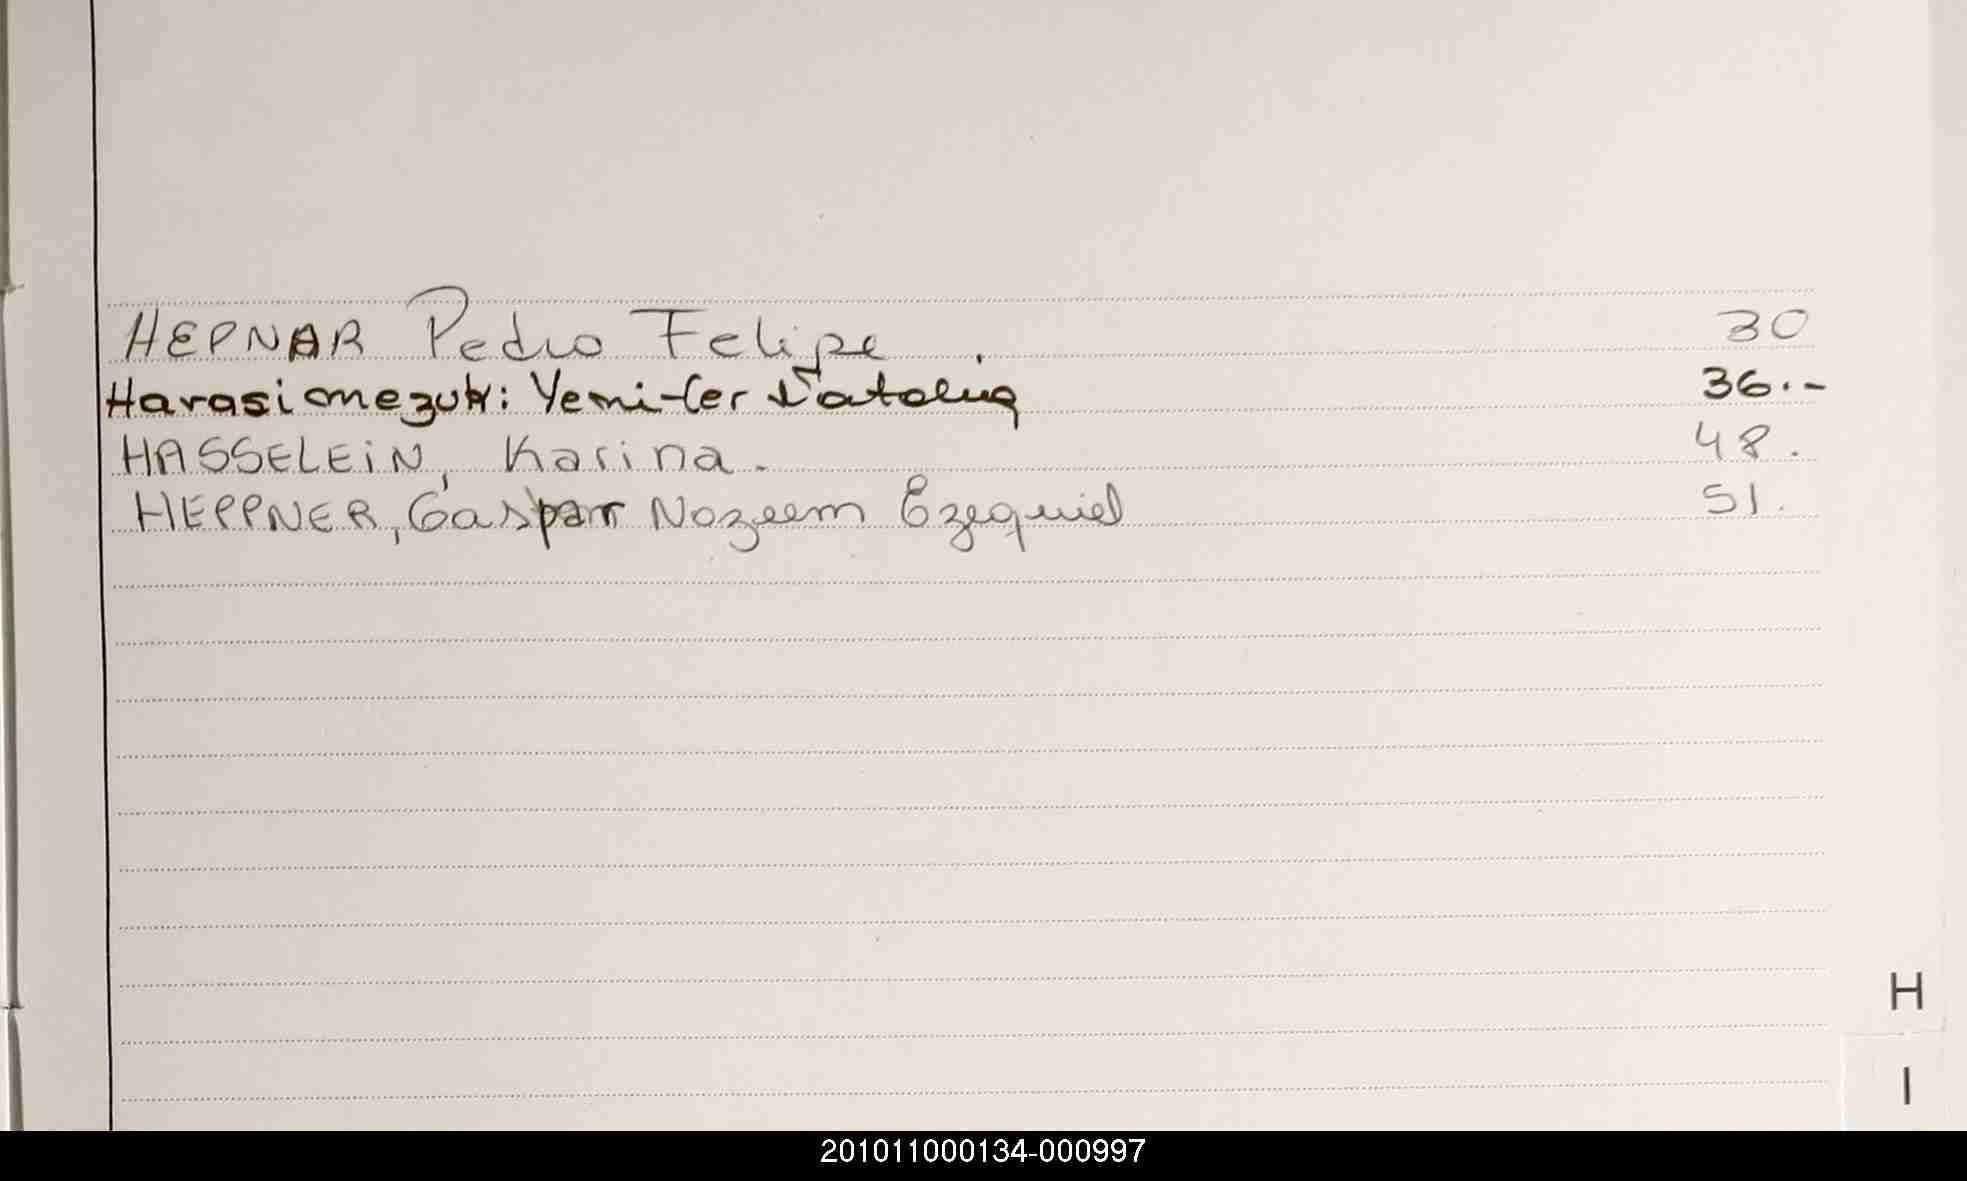 HEPNAR Pedro Felipe . 30
Harasimezuk: Yenifer Natalia 36.-
HASSELEiN, Karina. 48.
HEPPNER, Gaspar Nozeem Ezequiel 51.
H
I
201011000134-000997